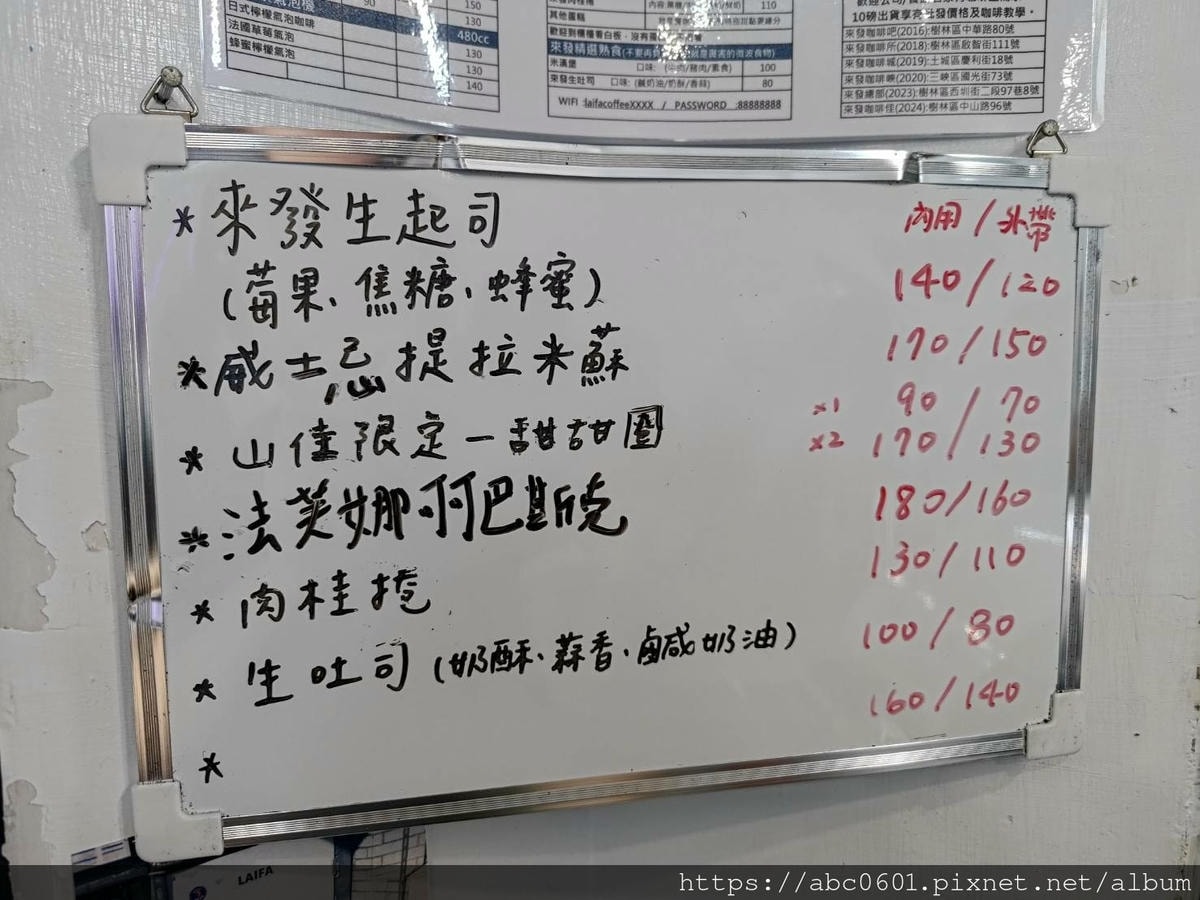 90 150
日式檸檬氣泡咖啡 130
法國草莓氣泡 480cc
蜂蜜檸檬氣泡 130
130
140
其他蛋糕
110
來發精選熟食
米漢堡 口味: (牛肉/豬肉/素食) 100
來發生吐司 口味: (鹹奶油/奶酥/香蒜) 80
WIFI :laifacoffeeXXXX / PASSWORD :88888888
10磅出貨享有批發價格及咖啡教學。
來發咖啡吧(2016):樹林區中華路80號
來發咖啡所(2018):樹林區啟智街111號
來發咖啡城(2019):土城區慶利街18號
來發咖啡峽(2020):三峽區國光街73號
來發總部(2023):樹林區西圳街二段97巷8號
來發咖啡佳(2024):樹林區中山路96號
內用/外帶
* 來發生起司
(莓果、焦糖、蜂蜜) 140/120
* 威士忌提拉米蘇 170/150
* 山佳限定-甜甜圈 x1 90/70
x2 170/130
* 法芙娜可可巴斯克 180/160
* 肉桂捲 130/110
* 生吐司(奶酥、蒜香、鹹奶油) 100/80
* 160/140
LAIFA
https://abc0601.pixnet.net/album